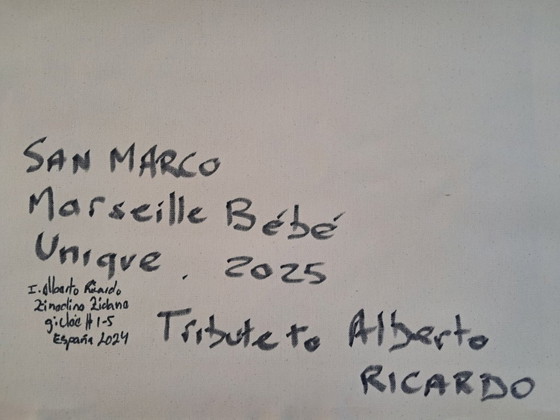 SAN MARCO
Marseille Bébé
Unique . 2025
I. Alberto Ricardo
Zinedine Zidane
giclée # 1-5
España 2024
Tribute to Alberto
RICARDO